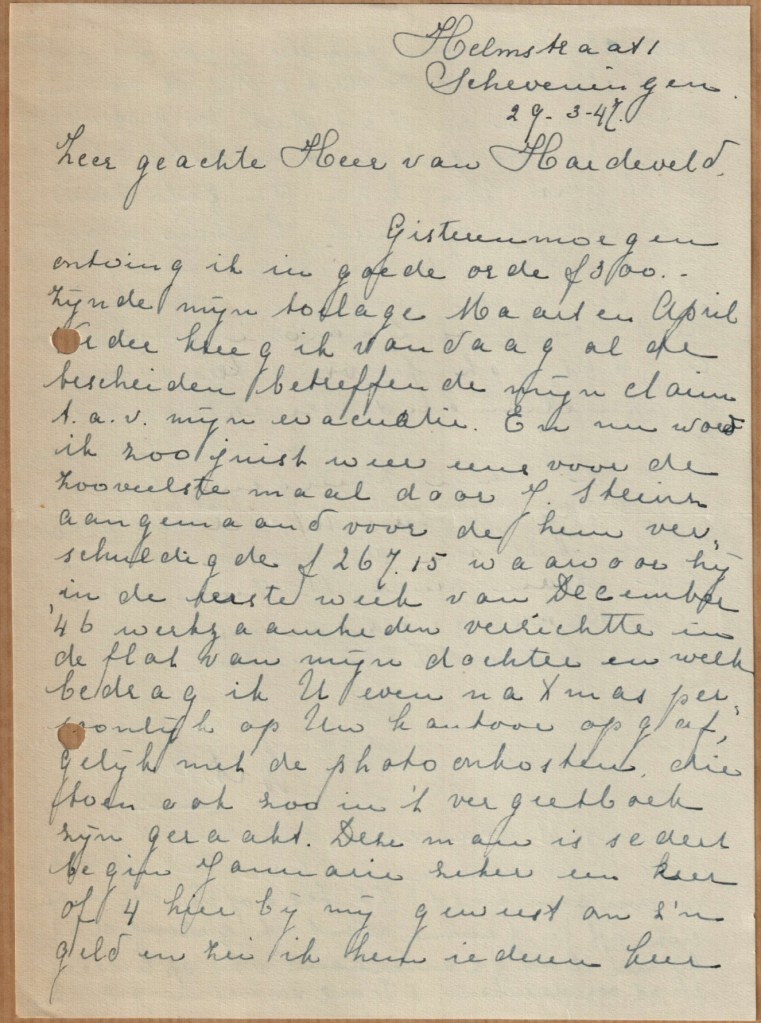 Helmstraat 1
Scheveningen.
29-3-47.
Zeer geachte Heer van Hardeveld,
Gisterenmorgen
ontving ik in goede orde f 300.-
zijnde mijn toelage Maart en April
Verder kreeg ik vandaag al de
bescheiden betreffende mijn claim
t.a.v. mijn evacuatie. En nu word
ik zoo juist weer eens voor de
zooveelste maal door J.
aangemaand voor de hem ver-
schuldigde f 267.15 waarvoor hij
in de eerste week van December
'46 werkzaamheden verrichtte in
de flat van mijn dochter en welk
bedrag ik U even na Xmas per-
soonlijk op Uw kantoor opgaf,
gelijk met de photo onkosten, die
toen ook zoo in 't vergeetboek
zijn geraakt. Deze man is sedert
begin Januarie zeker een keer
of 4 hier bij mij geweest om z'n
geld en zei ik hem iederen keer